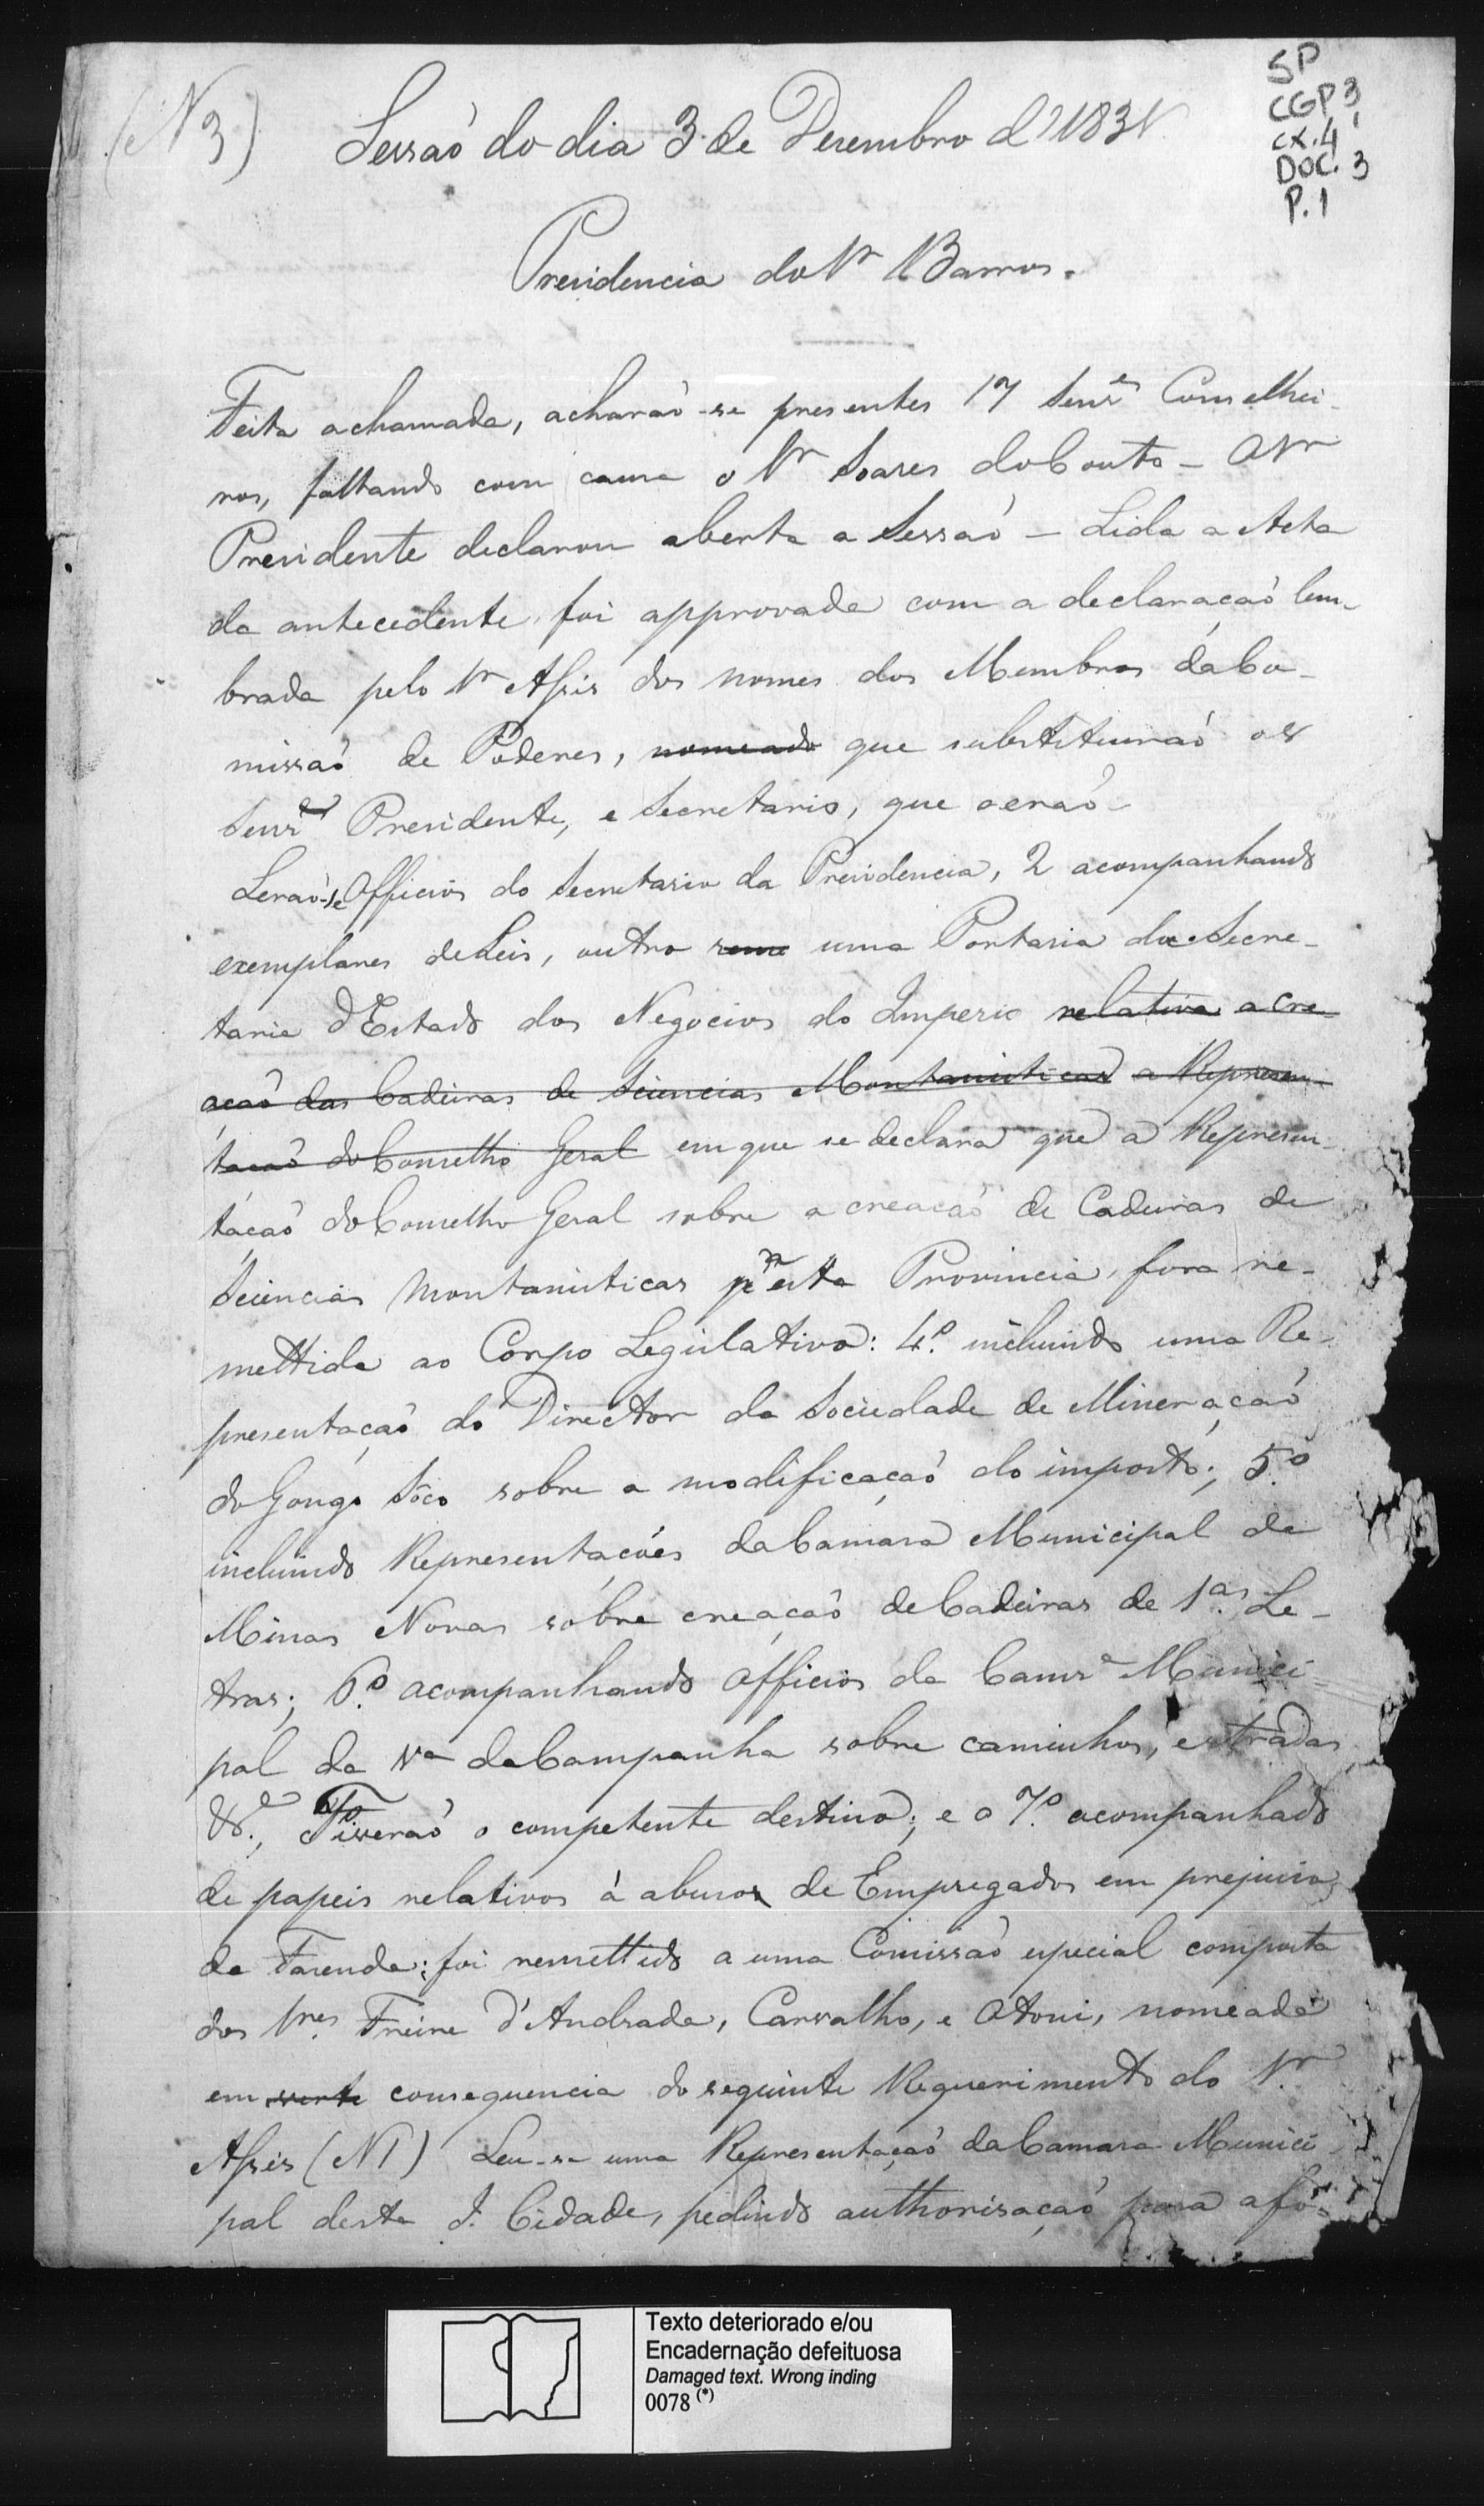 (N 3)
SP
CGP 3,
CX. 4
DOC. 3
P. 1
Sessaõ do dia 3 de Dezembro d'1831
Presidencia do Sr Barros.
Feita a chamada, acharaõ-se presentes 17 Senres Conselhei-
ros, faltando com causa o Sr Soares do Couto - O Sr
Presidente declarou aberta a Sessaõ - Lida a Acta
da antecedente, foi approvada com a declaraçaõ lem-
brada pelo Sr Assis dos nomes dos Membros da Co-
missaõ de Poderes, nomeado que substituiraõ os
Senres Presidente, e Secretario, que eraõ-
Leraõ-se Officios do Secretario da Presidencia, 2 acompanhando
exemplares de Leis, outro reme uma Portaria da Secre-
taria d'Estado dos Negocios do Imperio relativa a cre-
açaõ das Cadeiras de Sciencias Montanisticas a Represen-
taçaõ do Conselho Geral em que se declara que a Represen-
taçaõ do Conselho Geral sobre a creaçaõ de Cadeiras de
Sciencias Montanisticas nesta Provincia, fora re-
mettida ao Corpo Legislativo: 4.º incluindo uma Re-
presentaçaõ do Director da Sociedade de Mineraçaõ
do Gongo Sôco sobre a modificaçaõ do imposto; 5.º
incluindo Representaçoẽs da Camara Municipal de
Minas Novas sobre creaçaõ de Cadeiras de 1.as Le-
tras; 6.º acompanhando Officios da Camra Munici-
pal da Va da Campanha sobre caminhos, estradas
&.a, Tiveraõ o competente destino; e o 7.º acompanhado
de papeis relativos á abusos de Empregados em prejuizo
da Fazenda: foi remettido a uma Comissaõ especial composta
dos Sres Freire d'Andrade, Carvalho, e Otoni, nomeada
em consequencia do seguinte Requerimento do Sr
Assis (N 1) Leu-se uma Representaçaõ da Camara Munici
pal desta I. Cidade, pedindo authorisaçaõ para afo-
Texto deteriorado e/ou
Encadernação defeituosa
Damaged text. Wrong inding
0078 (*)